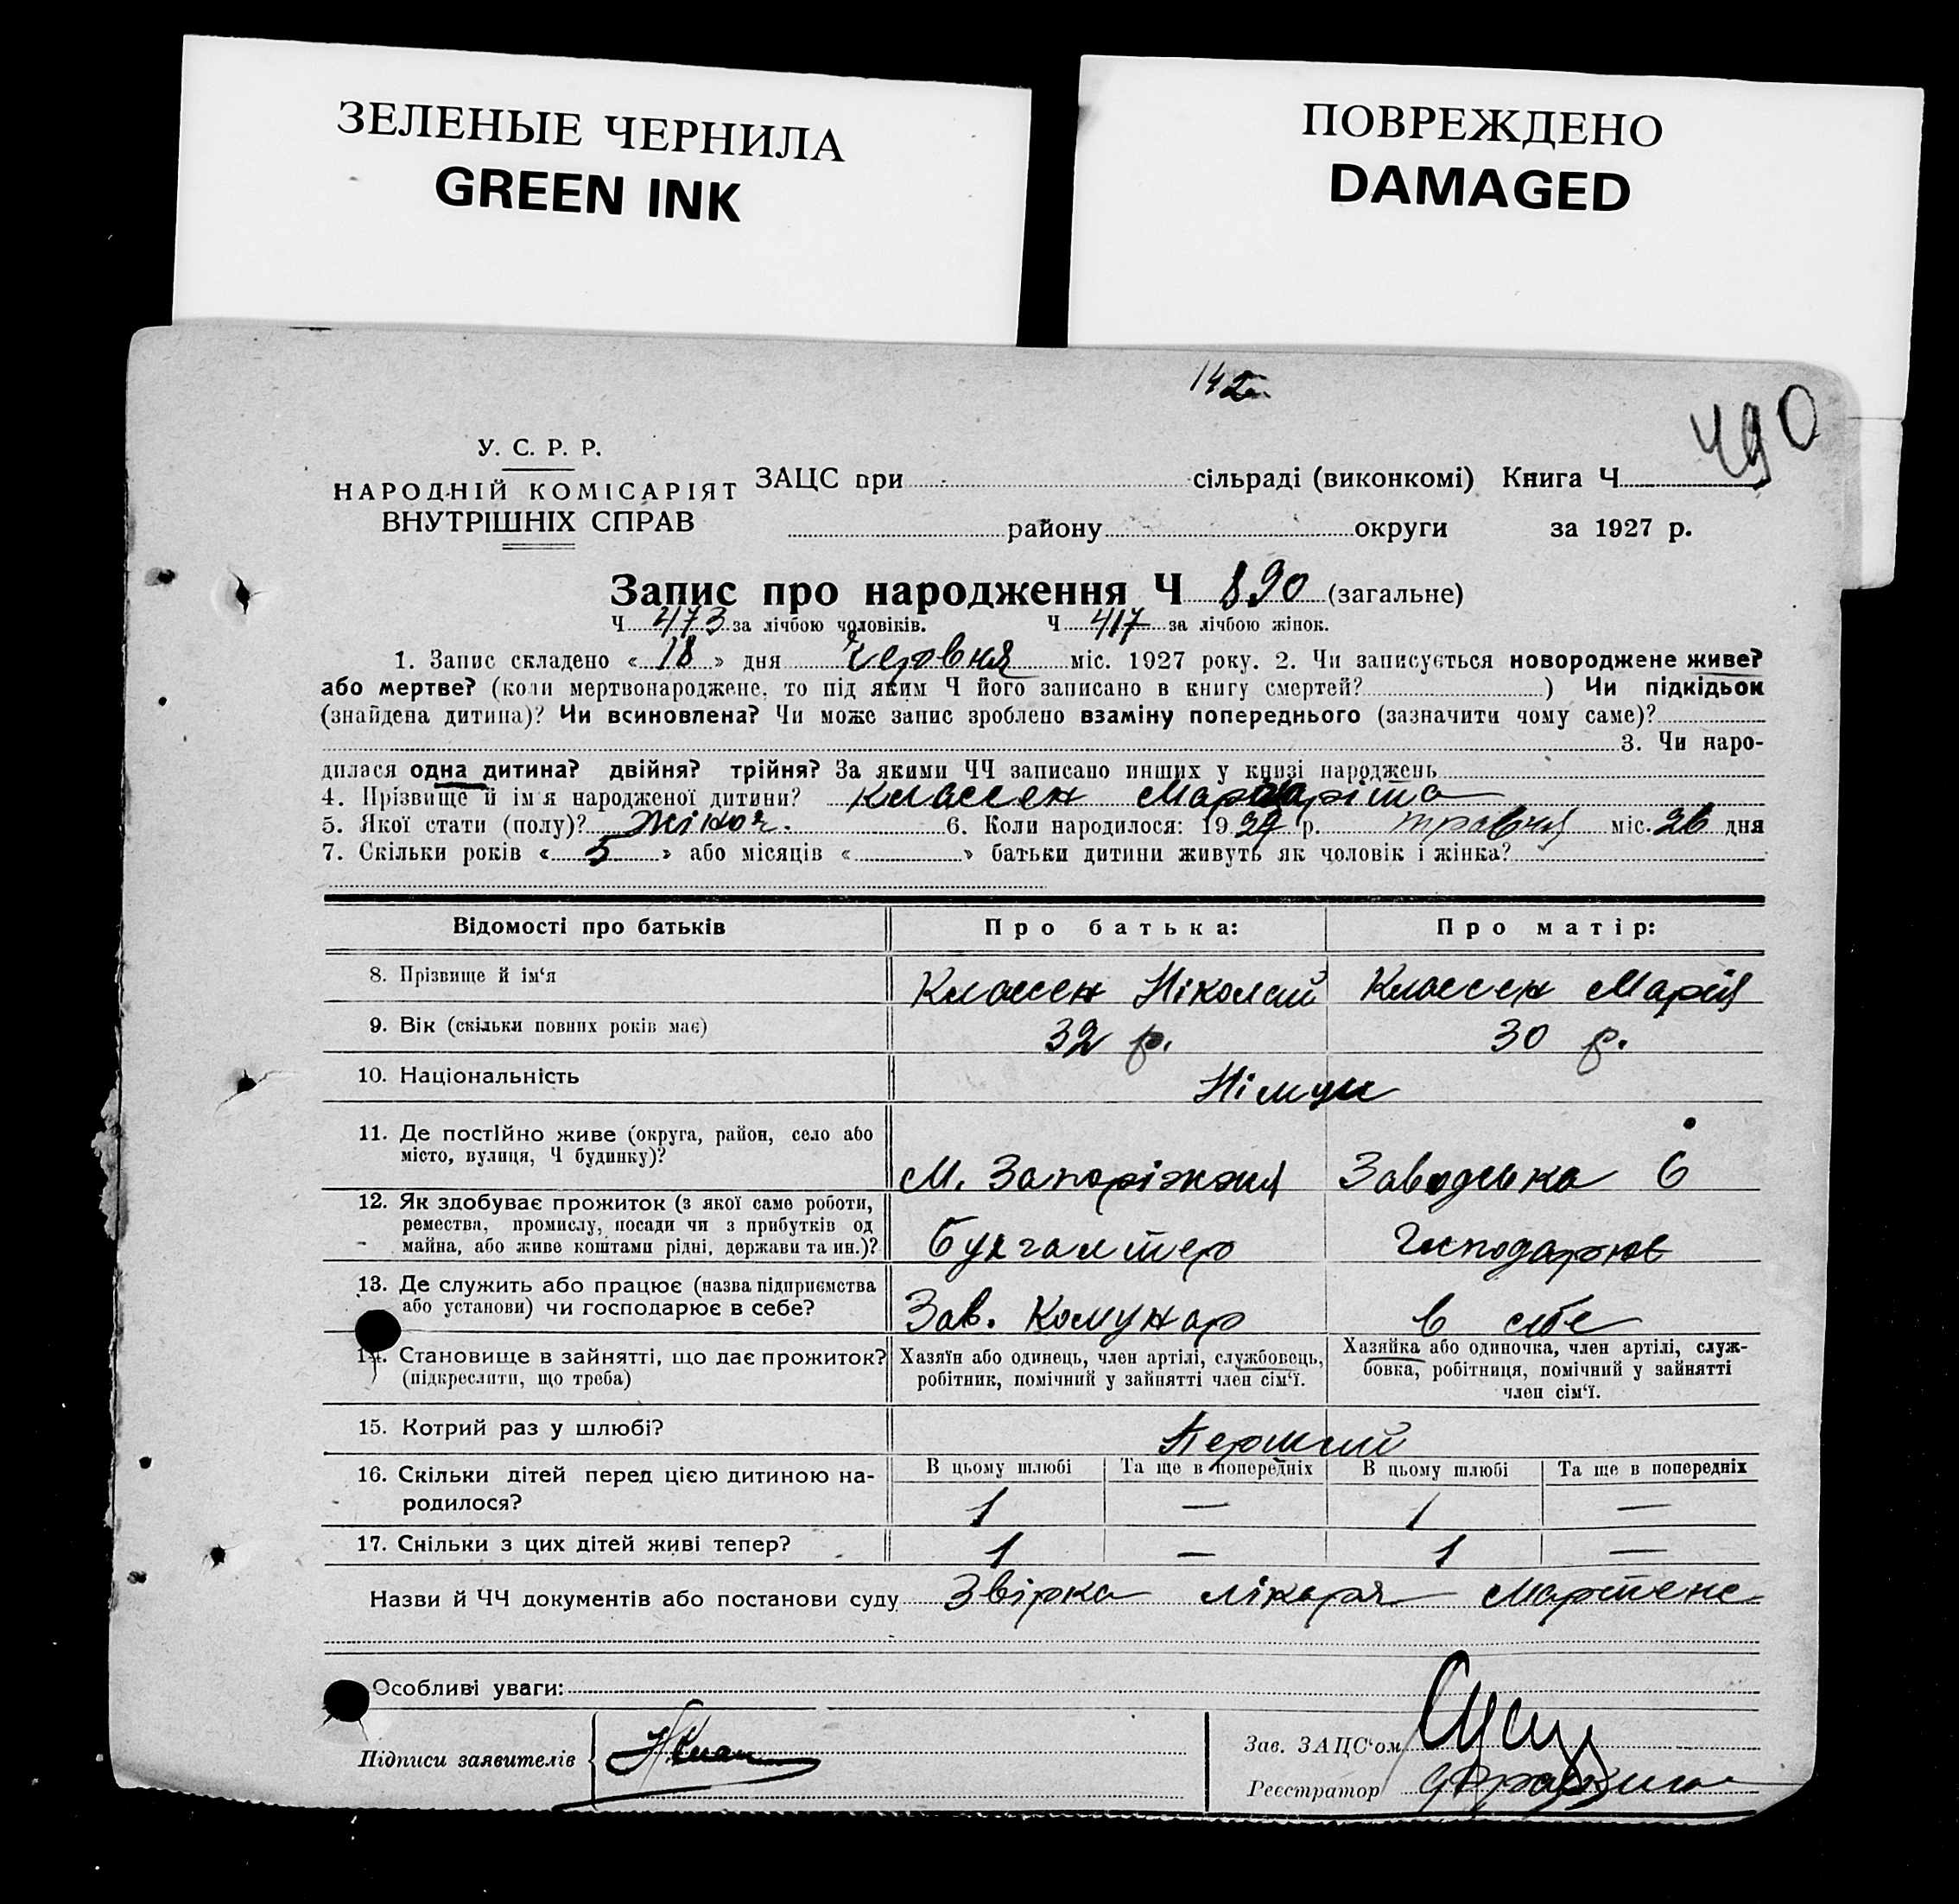 ЗЕЛЕНЫЕ ЧЕРНИЛА
GREEN INK
ПОВРЕЖДЕНО
DAMAGED
142
490
У. С. Р. Р.
НАРОДНІЙ КОМІСАРІЯТ
ВНУТРІШНІХ СПРАВ
ЗАЦС при сільраді (виконкомі) Книга Ч
району округи за 1927 р.
Запис про народження Ч 890 (загальне)
Ч 473 за лічбою чоловіків. Ч 417 за лічбою жінок.
1. Запис складено « 18 » дня Червня міс. 1927 року. 2. Чи записується новороджене живе?
або мертве? (коли мертвонароджене, то під яким Ч його записано в книгу смертей? ) Чи підкідьок
(знайдена дитина)? Чи всиновлена? Чи може запис зроблено взаміну попереднього (зазначити чому саме)?
3. Чи наро-
дилася одна дитина? двійня? трійня? За якими ЧЧ записано инших у книзі народжень
4. Прізвище й ім'я народженої дитини? Классен Маргаріта
5. Якої стати (полу)? Жіноч. 6. Коли народилося: 1927 р. травня міс. 26 дня
7. Скільки років « 5 » або місяців « » батьки дитини живуть як чоловік і жінка?
Відомості про батьків Про батька: Про матір:
8. Прізвище й ім'я Классен Ніколай Классен Марія
9. Вік (скільки повних років має) 32 р. 30 р.
10. Національність Німци
11. Де постійно живе (округа, район, село або
місто, вулиця, Ч будинку)? М. Запоріжжя Заводська 6
12. Як здобуває прожиток (з якої саме роботи,
ремества, промислу, посади чи з прибутків од
майна, або живе коштами рідні, держави та ин.)? Бухгалтер Господарює
13. Де служить або працює (назва підприємства
або установи) чи господарює в себе? Зав. Комунар в себе
14. Становище в зайнятті, що дає прожиток?
(підкреслити, що треба)
Хазяїн або одинець, член артілі, службовець,
робітник, помічний у зайнятті член сім'ї.
Хазяйка або одиночка, член артілі, служ-
бовка, робітниця, помічний у зайнятті
член сім'ї.
15. Котрий раз у шлюбі? Перший
16. Скільки дітей перед цією дитиною на-
родилося?
В цьому шлюбі Та ще в попередніх В цьому шлюбі Та ще в попередніх
1 — 1 —
17. Скільки з цих дітей живі тепер? 1 — 1 —
Назви й ЧЧ документів або постанови суду Звірка лікаря Мартенс
Особливі уваги:
Підписи заявителів
Зав. ЗАЦС'ом
Реєстратор